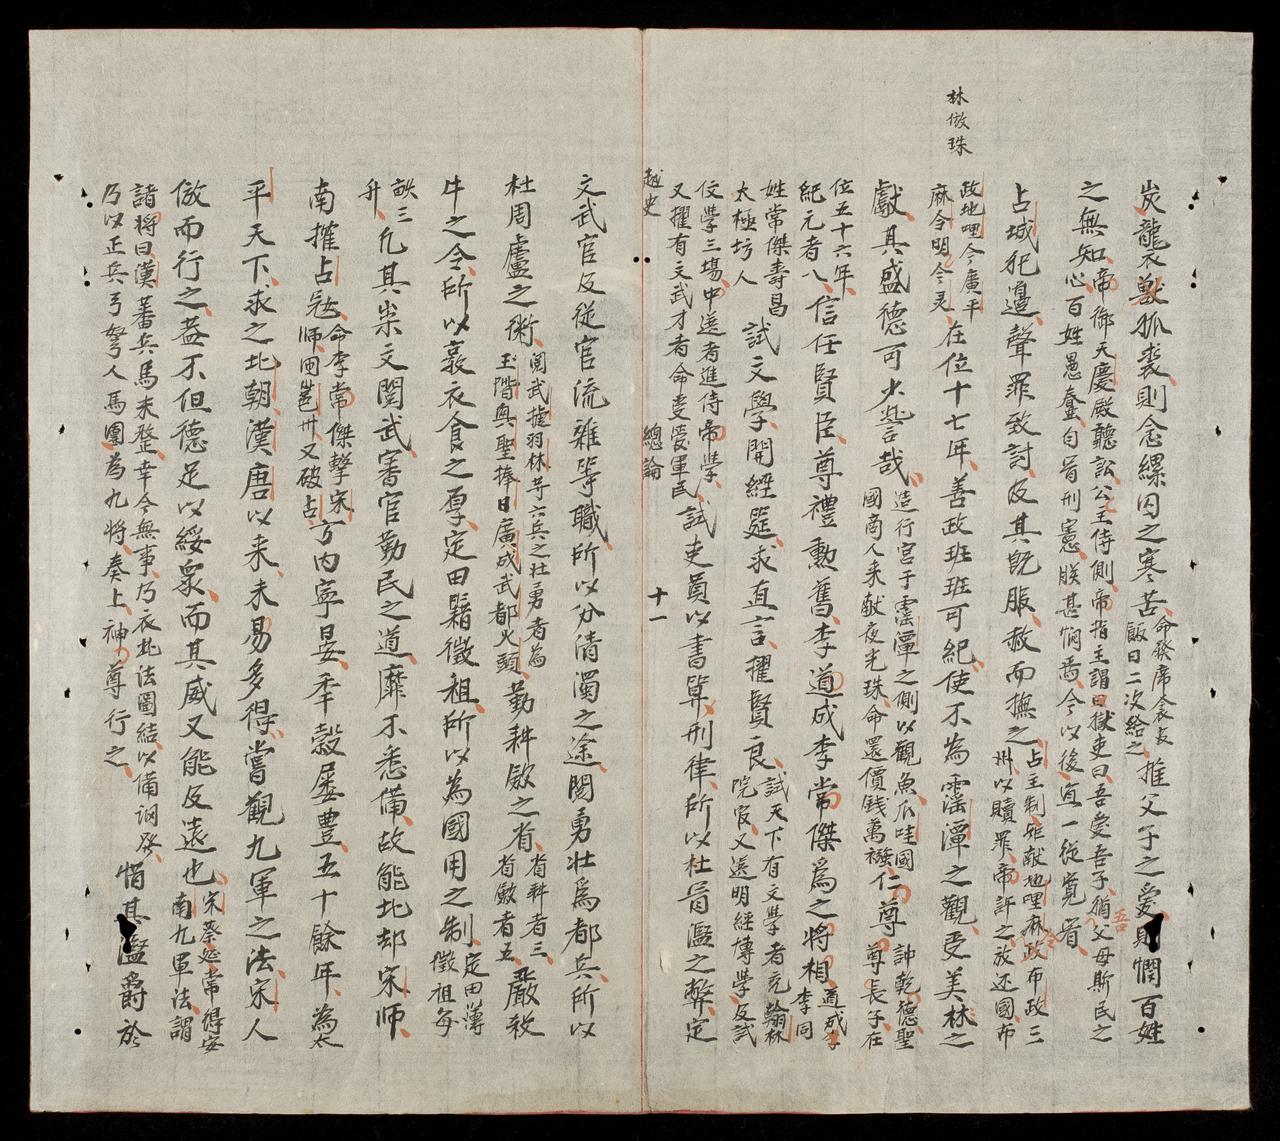 林倣珠
炭龍衮獸狐裘則念縲囚之寒苦命發席衾支飯日二次給之推父子之愛則憫百姓
之無知帝御天慶殿聽訟公主侍側帝指主謂曰獄吏曰吾愛吾子猶吾父母斯民之心百姓愚蠢自罹刑憲朕甚憫焉今以後宜一從寬宥
占城犯邊聲罪致討及其既服赦而撫之占主制矩献地哩麻政令布政三州以贖罪帝許之放还國布
政地哩今廣平麻令明令灵在位十七年善政班班可紀使不為霪潭之觀受美林之
獻其盛德可少訾哉造行宮于霪潭之側以觀魚爪哇國國商人来献夜光珠命還價錢萬襁仁尊諱乾德聖尊長子在
位五十六年紀元者八信任賢臣尊禮勳舊李道成李常傑為之將相道成李李同
姓常傑壽昌太極坊人試文學開經筵求直言擢賢良試天下有文學者充翰林院官又选明經博學及試
伩學三場中选者進侍帝學又擢有文武才者命爱愛軍民試吏員以書筭刑律所以杜冒濫之弊定
越史 總論 十一
文武官及從官流雜等職所以分清濁之途閱勇壮爲都兵所以
杜周廬之衛閱武捷羽林等六兵之壮勇者為玉階興聖捧日廣成武都火頭勤耕歛之省省耕者三省歛者五嚴殺
牛之令所以裒衣食之厚定田籍徵租所以為國用之制定田薄徵租每
畝三升凡其崇文閱武審官勤民之道靡不悉備故能北却宋師
南摧占冦命李常傑擊宋師困邕州又破占方内寧晏年穀屡豊五十餘年為太
平天下求之北朝漢唐以来未易多得嘗觀九軍之法宋人
倣而行之盖不但德足以綏衆而其威又能及遠也宋蔡延常得安南九軍法謂
諸将曰漢蕃兵馬未整幸今無事乃衣此法圖結以備調發乃以正兵弓弩人馬團為九将奏上神尊行之惜其濫爵於